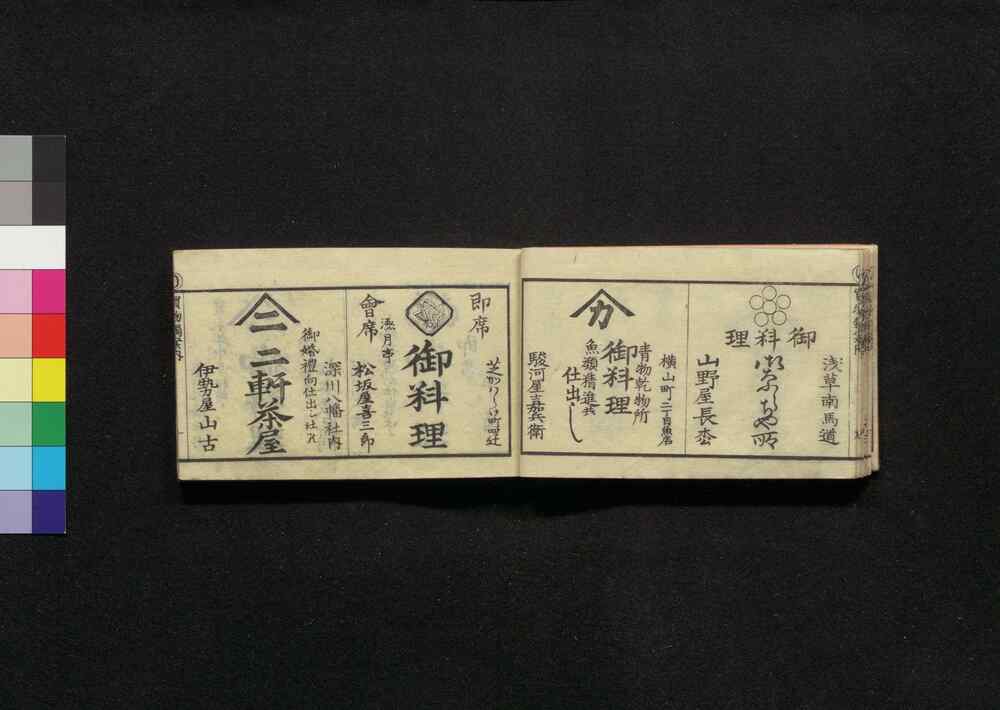 浅草南馬道
御料理
御ならちや所
山野屋長
横山町二丁目魚店
青物乾物所
御料理
魚類精進共
仕出し
駿河屋嘉兵衛
即席
御料理
月亭
會席
松坂屋喜三郎
深川八幡社内
御婚禮向仕出し仕候
二軒茶屋
伊勢屋山古